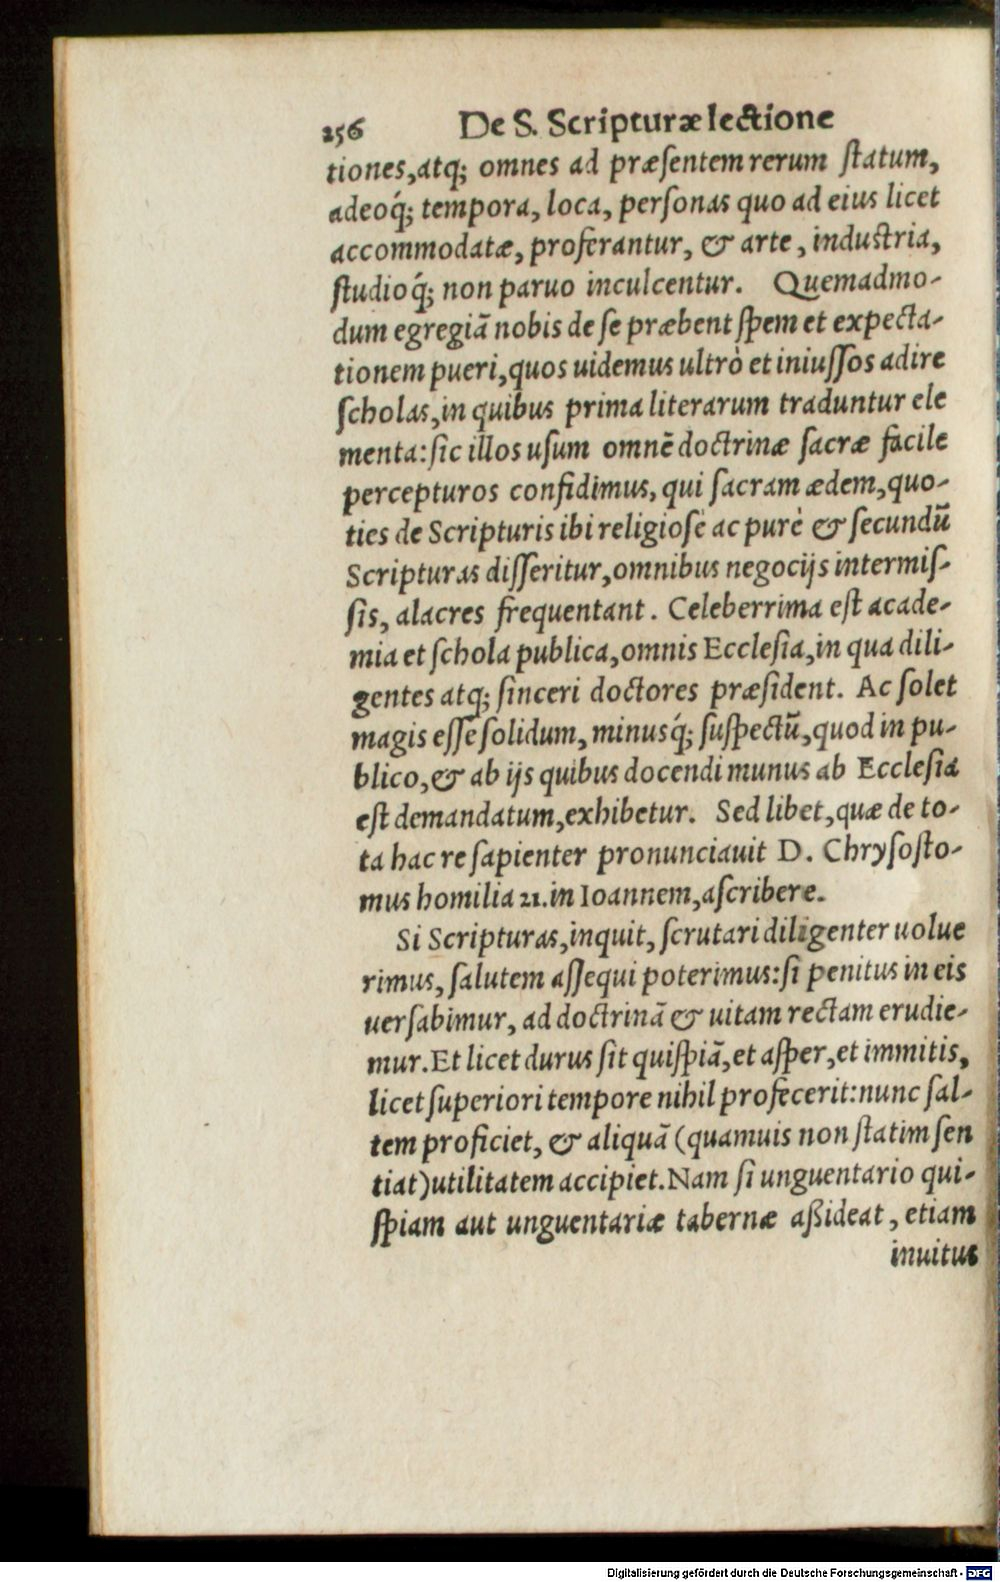 256 De S. Scripturæ lectione
tiones, atq; omnes ad præſentem rerum ſtatum,
adeoq́; tempora, loca, perſonas quo ad eius licet
accommodatæ, proferantur, & arte, induſtria,
ſtudioq́; non paruo inculcentur. Quemadmo-
dum egregiā nobis de ſe præbent ſpem et expecta-
tionem pueri, quos uidemus ultrò et iniuſſos adire
ſcholas, in quibus prima literarum traduntur ele
menta: ſic illos uſum omnē doctrinæ ſacræ facile
percepturos confidimus, qui ſacram ædem, quo-
ties de Scripturis ibi religioſè ac purè & ſecundū
Scripturas diſſeritur, omnibus negocijs intermiſ-
ſis, alacres frequentant. Celeberrima eſt acade-
mia et ſchola publica, omnis Eccleſia, in qua dili-
gentes atq; ſinceri doctores præſident. Ac ſolet
magis eſſe ſolidum, minusq́; ſuſpectū, quod in pu-
blico, & ab ijs quibus docendi munus ab Eccleſia
eſt demandatum, exhibetur. Sed libet, quæ de to-
ta hac re ſapienter pronunciauit D. Chryſoſto-
mus homilia 21. in Ioannem, aſcribere.
Si Scripturas, inquit, ſcrutari diligenter uolue
rimus, ſalutem aſſequi poterimus: ſi penitus in eis
uerſabimur, ad doctrinā & uitam rectam erudie-
mur. Et licet durus ſit quiſpiā, et aſper, et immitis,
licet ſuperiori tempore nihil profecerit: nunc ſal-
tem proficiet, & aliquā (quamuis non ſtatim ſen
tiat) utilitatem accipiet. Nam ſi unguentario qui-
ſpiam aut unguentariæ tabernæ aßideat, etiam
inuitus
Digitalisierung gefördert durch die Deutsche Forschungsgemeinschaft - DFG